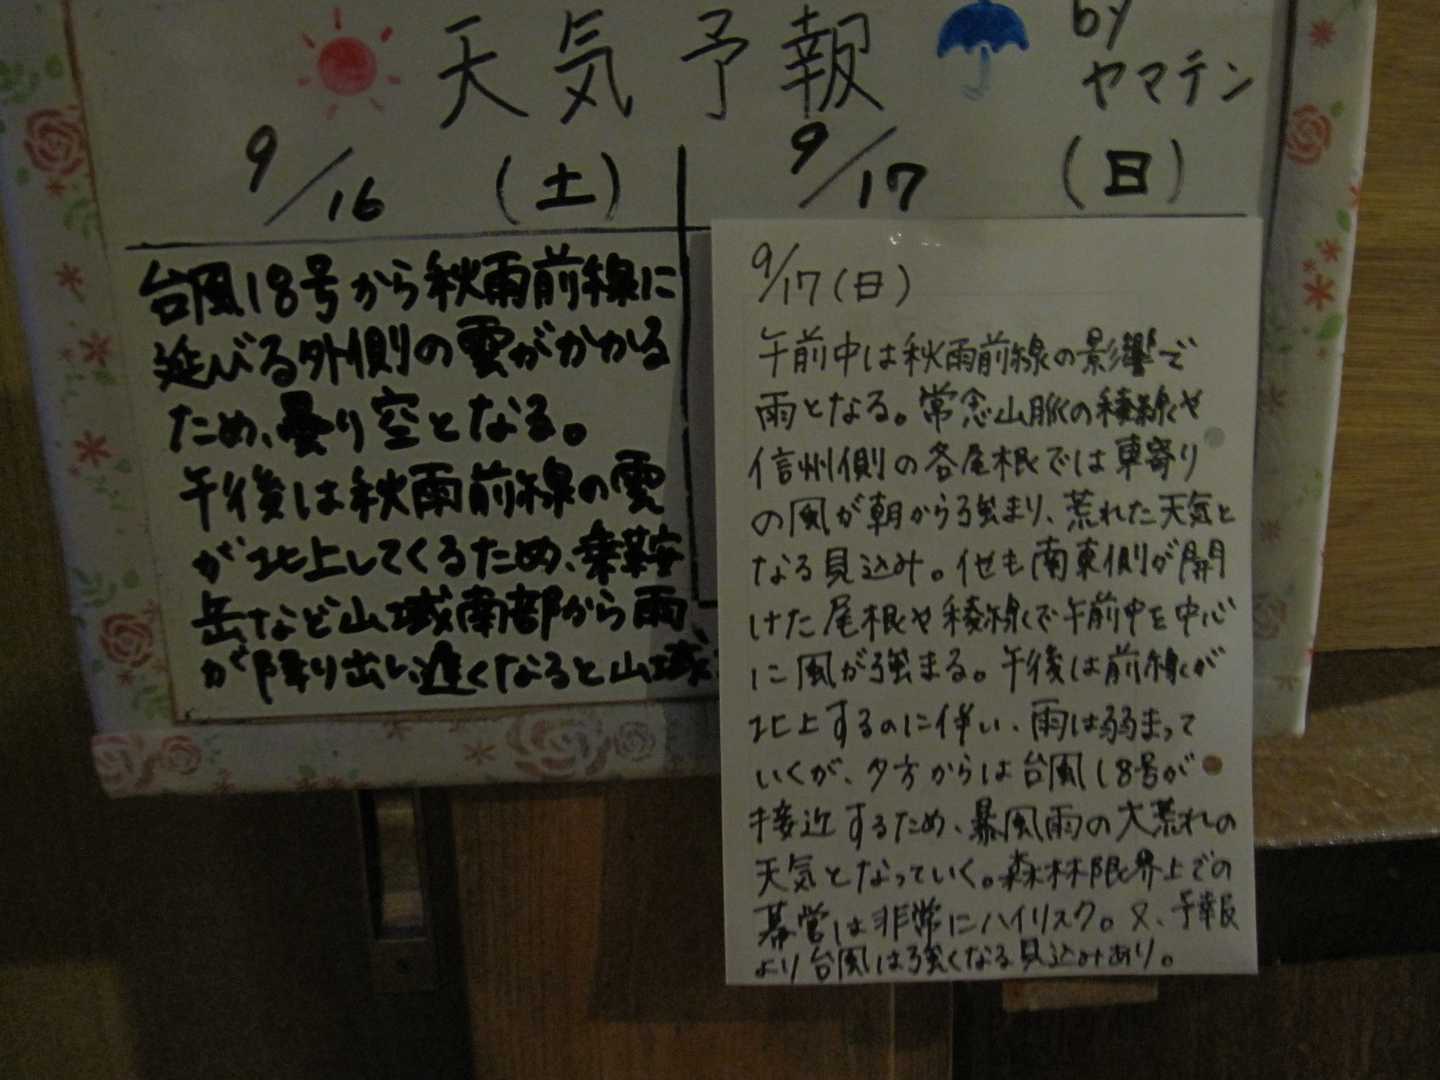 天気予報
by
ヤマテン
9/16 (土)
台風18号から秋雨前線に
延びる外側の雲がかかる
ため、曇り空となる。
午後は秋雨前線の雲
が北上してくるため、乗鞍
岳など山域南部から雨
が降り出し、遅くなると山域
9/17 (日)
9/17(日)
午前中は秋雨前線の影響で
雨となる。常念山脈の稜線や
信州側の各尾根では東寄り
の風が朝から強まり、荒れた天気と
なる見込み。他も南東側が開
けた尾根や稜線で午前中を中心
に風が強まる。午後は前線が
北上するのに伴い、雨は弱まって
いくが、夕方からは台風18号が
接近するため、暴風雨の大荒れの
天気となっていく。森林限界上での
幕営は非常にハイリスク。又、予報
より台風は強くなる見込みあり。